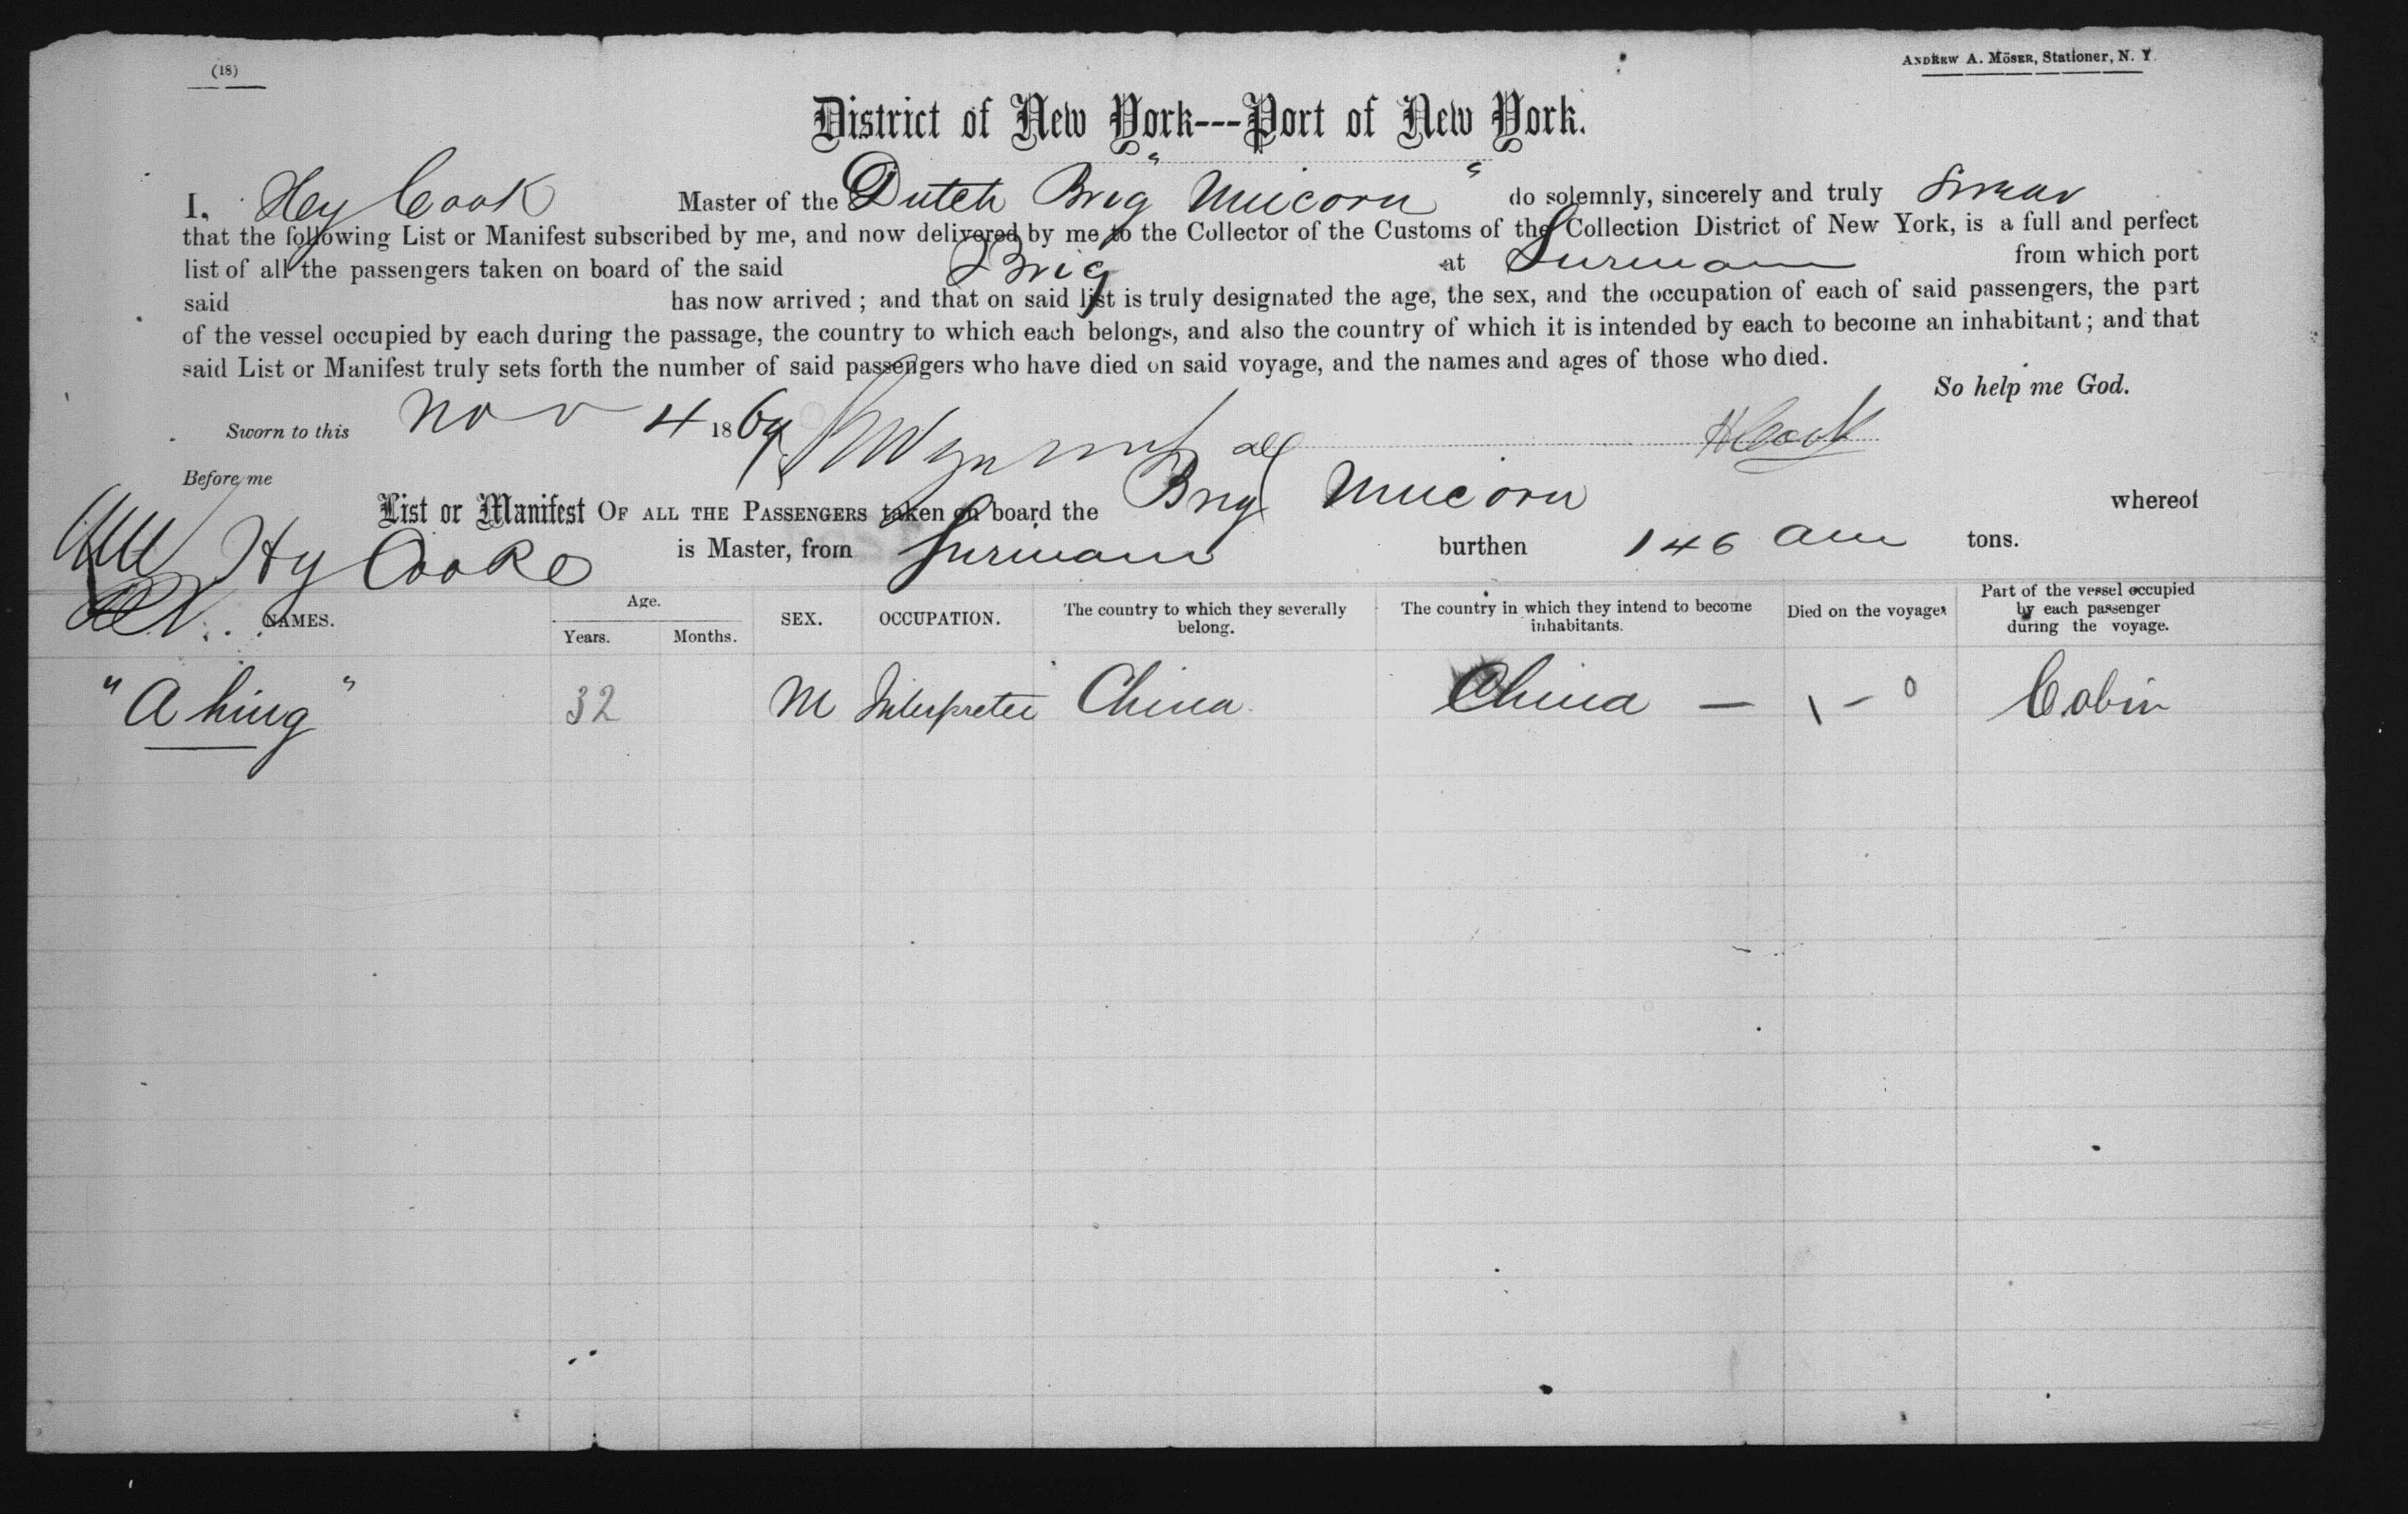 (18)
ANDREW A. MÖSER, Stationer, N. Y.
District of New York---Port of New York.
I, Hy Cook Master of the Dutch Brig "Unicorn" do solemnly, sincerely and truly swear
that the following List or Manifest subscribed by me, and now delivered by me to the Collector of the Customs of the Collection District of New York, is a full and perfect
list of all the passengers taken on board of the said Brig at Surinam from which port
said has now arrived; and that on said list is truly designated the age, the sex, and the occupation of each of said passengers, the part
of the vessel occupied by each during the passage, the country to which each belongs, and also the country of which it is intended by each to become an inhabitant; and that
said List or Manifest truly sets forth the number of said passengers who have died on said voyage, and the names and ages of those who died.
So help me God.
Sworn to this Nov 4 1869 H Cook
Before me
List or Manifest OF ALL THE PASSENGERS taken on board the Brig Unicorn whereof
Hy Cooke is Master, from Surinam burthen 146 tons.
NAMES.
Age.
Years.
Months.
SEX.
OCCUPATION.
The country to which they severally
belong.
The country in which they intend to become
inhabitants.
Died on the voyage.
Part of the vessel occupied
by each passenger
during the voyage.
"A hing" 32 M Interpreter China China — \ – 0 Cabin